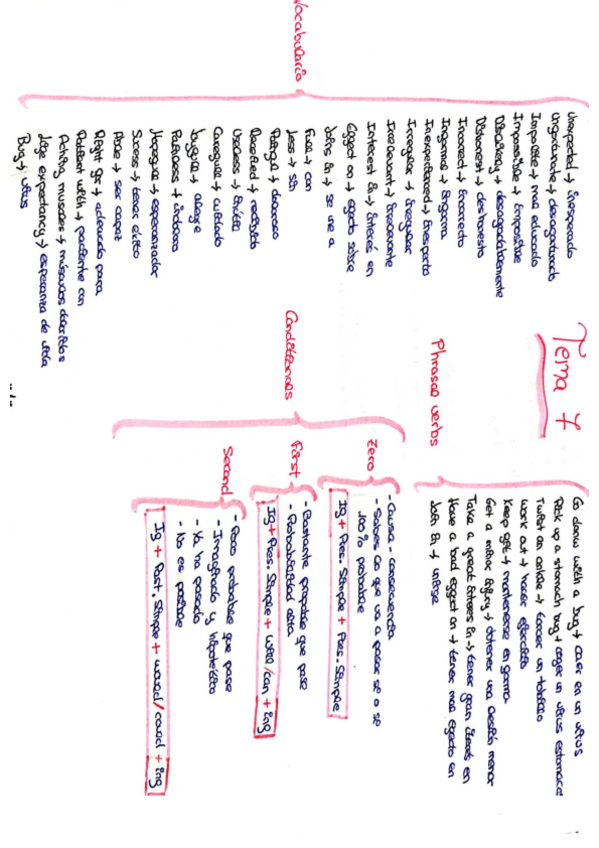 Tema 7
Vocabulario
Unexpected → inesperado
Unfortunate → desafortunado
Impolite → mal educado
Impossible → imposible
Dishonest → deshonesto
Incorrect → incorrecto
Informal → informal
Inexperienced → inexperto
Irregular → irregular
Irrelevant → irrelevante
Interest in → interés en
Effect on → efecto sobre
Joins in → se une a
Full → con
Less → sin
Painful → doloroso
Useless → inútil
Careful → cuidado
→ alegre
Hopeful → esperanzador
Sucess → tener éxito
Able → ser capaz
Right for → adecuado para
Patient with → paciente con
Aching muscles → músculos doloridos
Life expectancy → esperanza de vida
Bug → virus
Phrasal verbs
Go down with a bug → caer en un virus
Pick up a stomach bug → coger un virus estomacal
Twist an ankle → torcer un tobillo
Work out → hacer ejercicio
Keep fit → mantenerse en forma
Get a minor injury → obtener una lesión menor
Take a great interes in → tener gran interés en
Have a bad effect on → tener mal efecto en
Join in → unirse
Conditionals
Zero
- Causa - consecuencia
- Sabes lo que va a pasar sí o sí
100% probable
If + Pres. Simple + Pres. Simple
First
- Bastante probable que pase
- Probabilidad alta
If + Pres. Simple + will/can + inf
Second
- Poco probable que pase
- Imaginado y hipotético
- Ya ha pasado
- No es posible
If + Past. Simple + would/could + inf